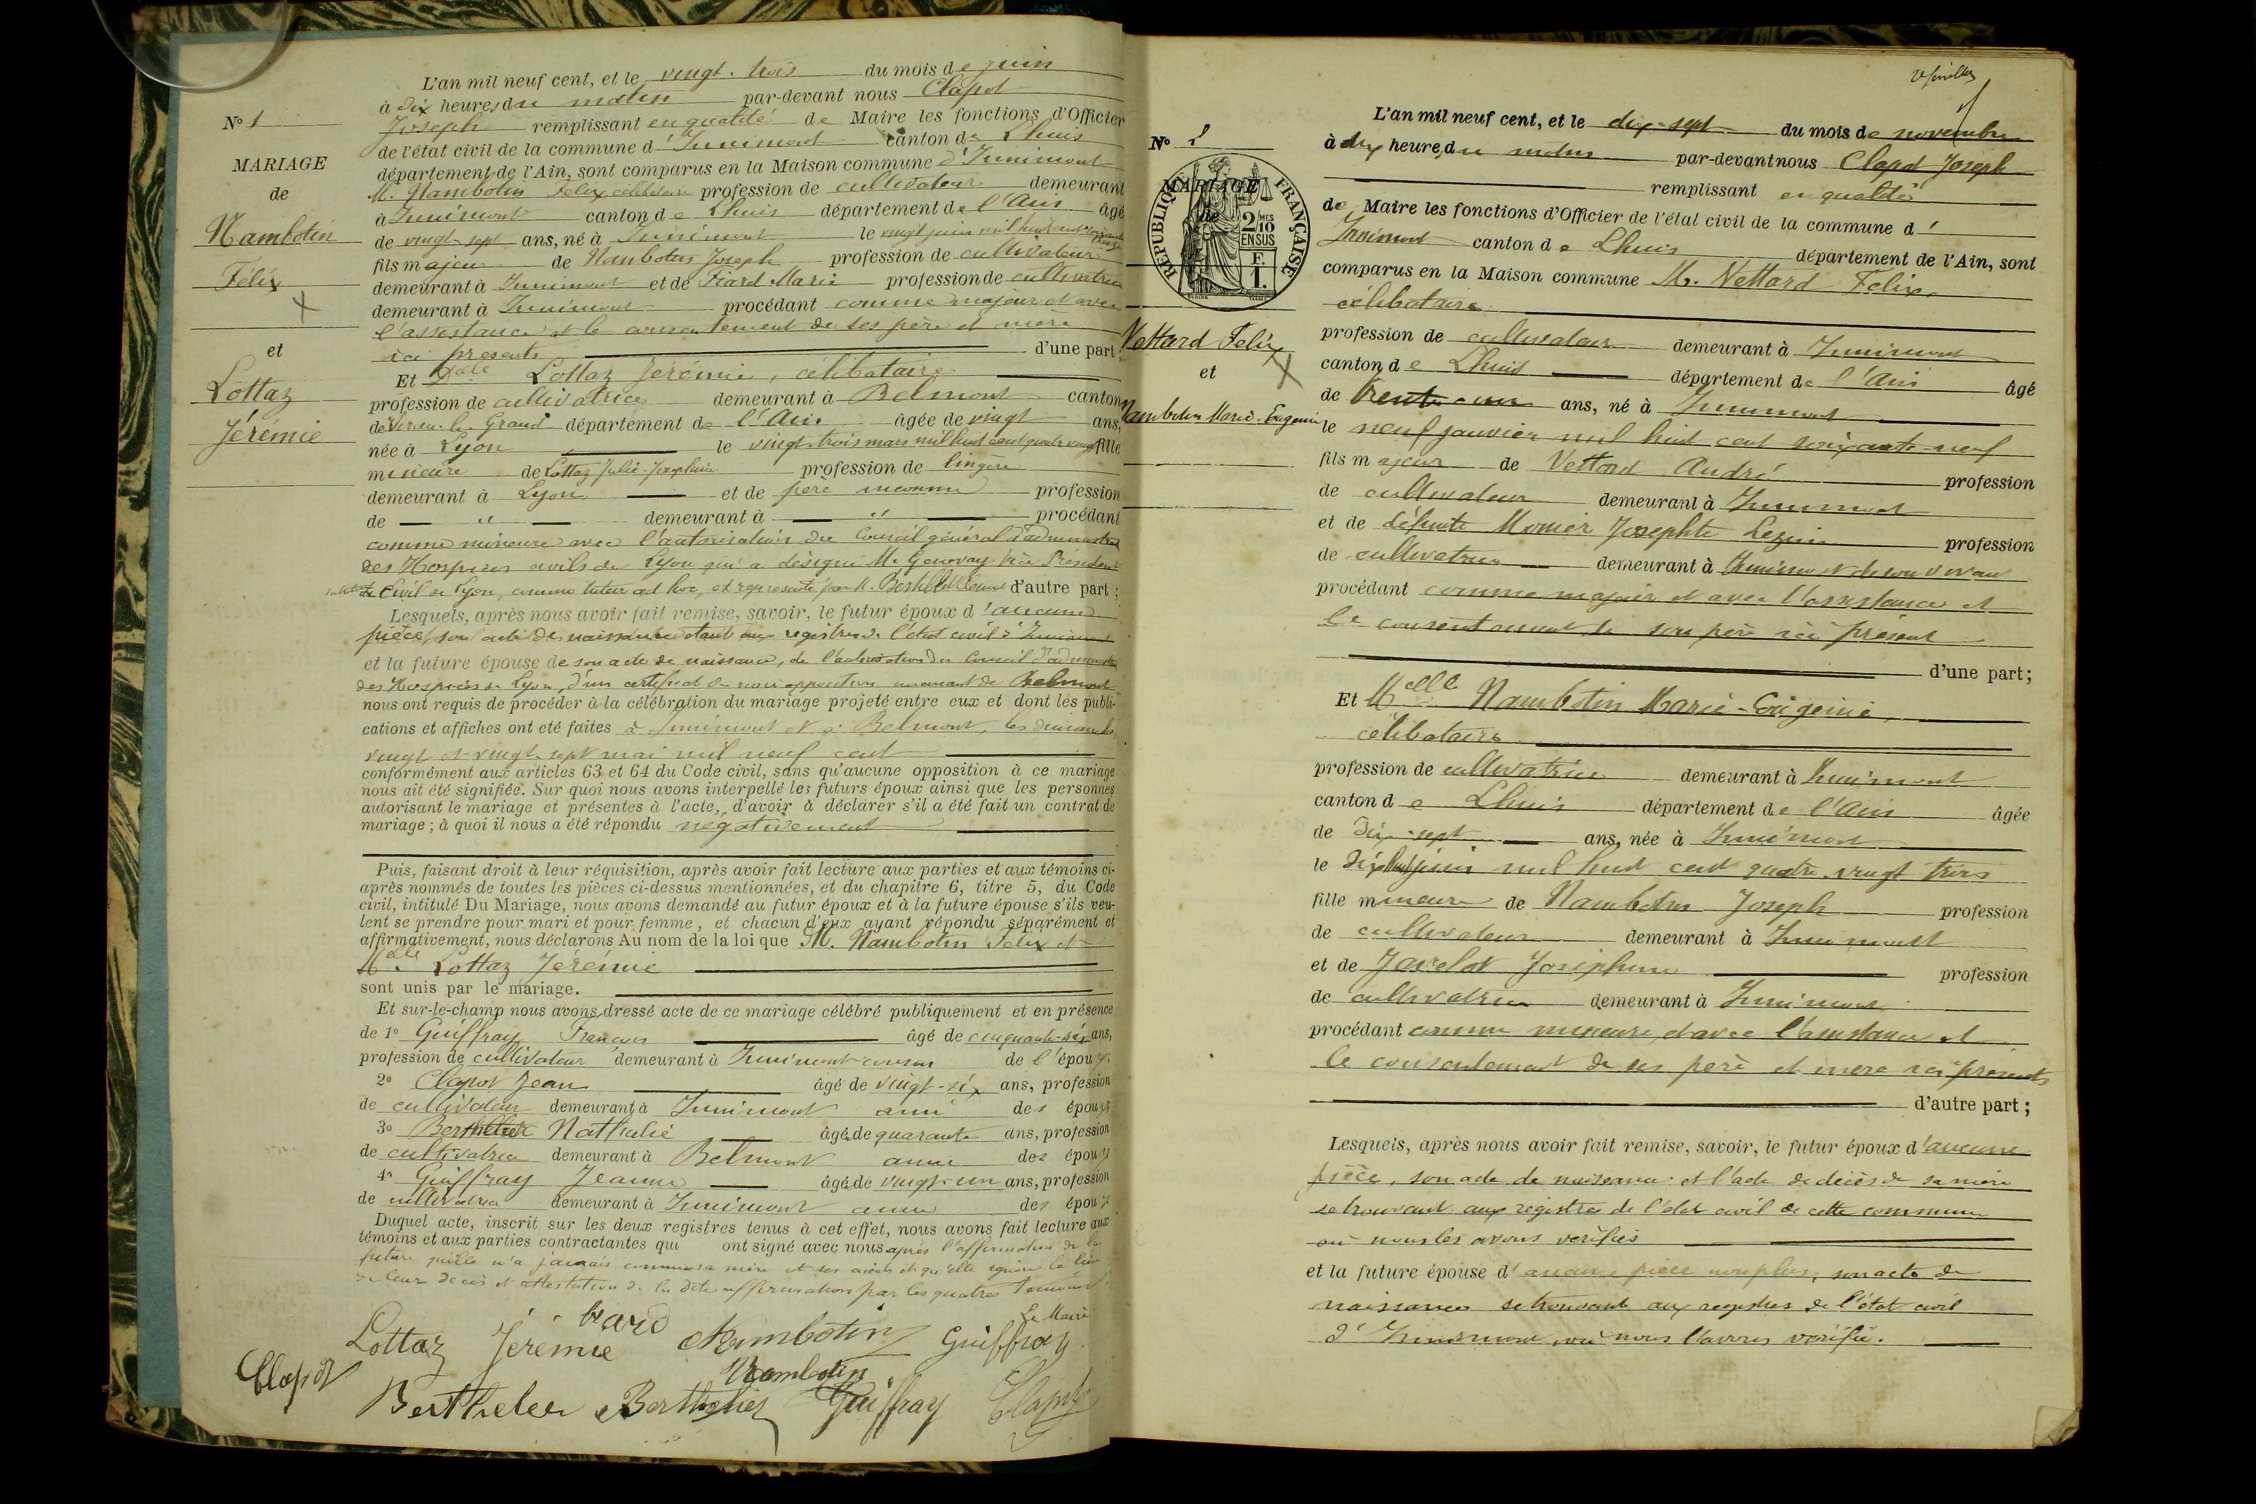 L'an mil neuf cent, et le vingt-trois du mois de juin
à dix heures du matin par-devant nous Clapot
Joseph remplissant en qualité de Maire les fonctions d'Officier
de l'état civil de la commune d'Innimont canton de Lhuis
département de l'Ain, sont comparus en la Maison commune d'Innimont
M. Nambotin Félix célibataire profession de cultivateur demeurant
à Innimont canton de Lhuis département de l'Ain âgé
de vingt-sept ans, né à Innimont le vingt juin mil huit cent
fils majeur de Nambotin Joseph profession de cultivateur
demeurant à Innimont et de Fiard Marie profession de cultivatrice
demeurant à Innimont procédant comme majeur et avec
l'assistance et le consentement de ses père et mère
ici présents d'une part;
Et Dlle Lottaz Jérémie, célibataire
profession de cultivatrice demeurant à Belmont canton
de Virieu-le-Grand département de l'Ain âgée de vingt ans,
née à Lyon le vingt-trois mars mil huit cent quatre vingt fille
mineure de Lottaz Julie-Joséphine profession de lingère
demeurant à Lyon et de père inconnu profession
de " demeurant à " procédant
comme mineure avec l'autorisation du Conseil général d'administration
des Hospices civils de Lyon qui a désigné M. Genevay Vice Président
Civil de Lyon, comme tuteur ad hoc, et représenté par M. d'autre part;
Lesquels, après nous avoir fait remise, savoir, le futur époux d'aucune
pièce, son acte de naissance étant aux registres de l'état civil d'Innimont
et la future épouse de son acte de naissance, de l'autorisation du Conseil d'administration
des Hospices de Lyon, d'un certificat de non opposition de Belmont
nous ont requis de procéder à la célébration du mariage projeté entre eux et dont les publi-
cations et affiches ont été faites à Innimont et à Belmont, les dimanches
vingt et vingt-sept mai mil neuf cent
conformément aux articles 63 et 64 du Code civil, sans qu'aucune opposition à ce mariage
nous ait été signifiée. Sur quoi nous avons interpellé les futurs époux ainsi que les personnes
autorisant le mariage et présentes à l'acte, d'avoir à déclarer s'il a été fait un contrat de
mariage; à quoi il nous a été répondu négativement
Puis, faisant droit à leur réquisition, après avoir fait lecture aux parties et aux témoins ci-
après nommés de toutes les pièces ci-dessus mentionnées, et du chapitre 6, titre 5, du Code
civil, intitulé Du Mariage, nous avons demandé au futur époux et à la future épouse s'ils veu-
lent se prendre pour mari et pour femme, et chacun d'eux ayant répondu séparément et
affirmativement, nous déclarons Au nom de la loi que M. Nambotin Félix et
Mlle Lottaz Jérémie
sont unis par le mariage.
Et sur-le-champ nous avons dressé acte de ce mariage célébré publiquement et en présence
de 1° Guiffray François âgé de cinquante-six ans,
profession de cultivateur demeurant à Innimont cousin de l'époux,
2° Clapot Jean âgé de vingt-six ans, profession
de cultivateur demeurant à Innimont ami des époux
3° Berthelier Nathalie âgée de quarante ans, profession
de cultivatrice demeurant à Belmont amie des époux
4° Guiffray Jeanne âgée de vingt-un ans, profession
de cultivatrice demeurant à Innimont amie des époux
Duquel acte, inscrit sur les deux registres tenus à cet effet, nous avons fait lecture aux
témoins et aux parties contractantes qui ont signé avec nous après l'affirmation de la
future qu'elle n'a jamais connu sa mère et ses aïeuls et qu'elle ignore le lieu
de leur décès et attestation de la dite affirmation par les quatre témoins
Le Maire
Lottaz Jérémie Nambotin Guiffray
Clapot Nambotin
Berthelier Berthelier Guiffray Clapot
N° 1
MARIAGE
de
Nambotin
Félix
et
Lottaz
Jérémie
N° 2
MARIAGE
de
RÉPUBLIQUE FRANÇAISE
2/10 MES
EN SUS
F.
1.
Vettard Félix
et
Nambotin Marie-Eugénie
L'an mil neuf cent, et le dix-sept du mois de novembre
à dix heures du matin par-devant nous Clapot Joseph
remplissant en qualité
de Maire les fonctions d'Officier de l'état civil de la commune d'
Innimont canton de Lhuis département de l'Ain, sont
comparus en la Maison commune M. Vettard Félix,
célibataire
profession de cultivateur demeurant à Innimont
canton de Lhuis département de l'Ain âgé
de trente-un ans, né à Innimont
le neuf janvier mil huit cent soixante-neuf
fils majeur de Vettard André profession
de cultivateur demeurant à Innimont
et de défunte Monier Josephte profession
de cultivatrice demeurant à Innimont de son vivant
procédant comme majeur et avec l'assistance et
le consentement de son père ici présent
d'une part;
Et Melle Nambotin Marie-Eugénie,
célibataire
profession de cultivatrice demeurant à Innimont
canton de Lhuis département de l'Ain âgée
de dix-sept ans, née à Innimont
le juin mil huit cent quatre-vingt trois
fille mineure de Nambotin Joseph profession
de cultivateur demeurant à Innimont
et de Javelot Joséphine profession
de cultivatrice demeurant à Innimont
procédant comme mineure et avec l'assistance et
le consentement de ses père et mère ici présents
d'autre part;
Lesquels, après nous avoir fait remise, savoir, le futur époux d'aucune
pièce, son acte de naissance et l'acte de décès de sa mère
se trouvant aux registres de l'état civil de cette commune
où nous les avons vérifiés
et la future épouse d'aucune pièce non plus, son acte de
naissance se trouvant aux registres de l'état civil
d'Innimont, où nous l'avons vérifié.